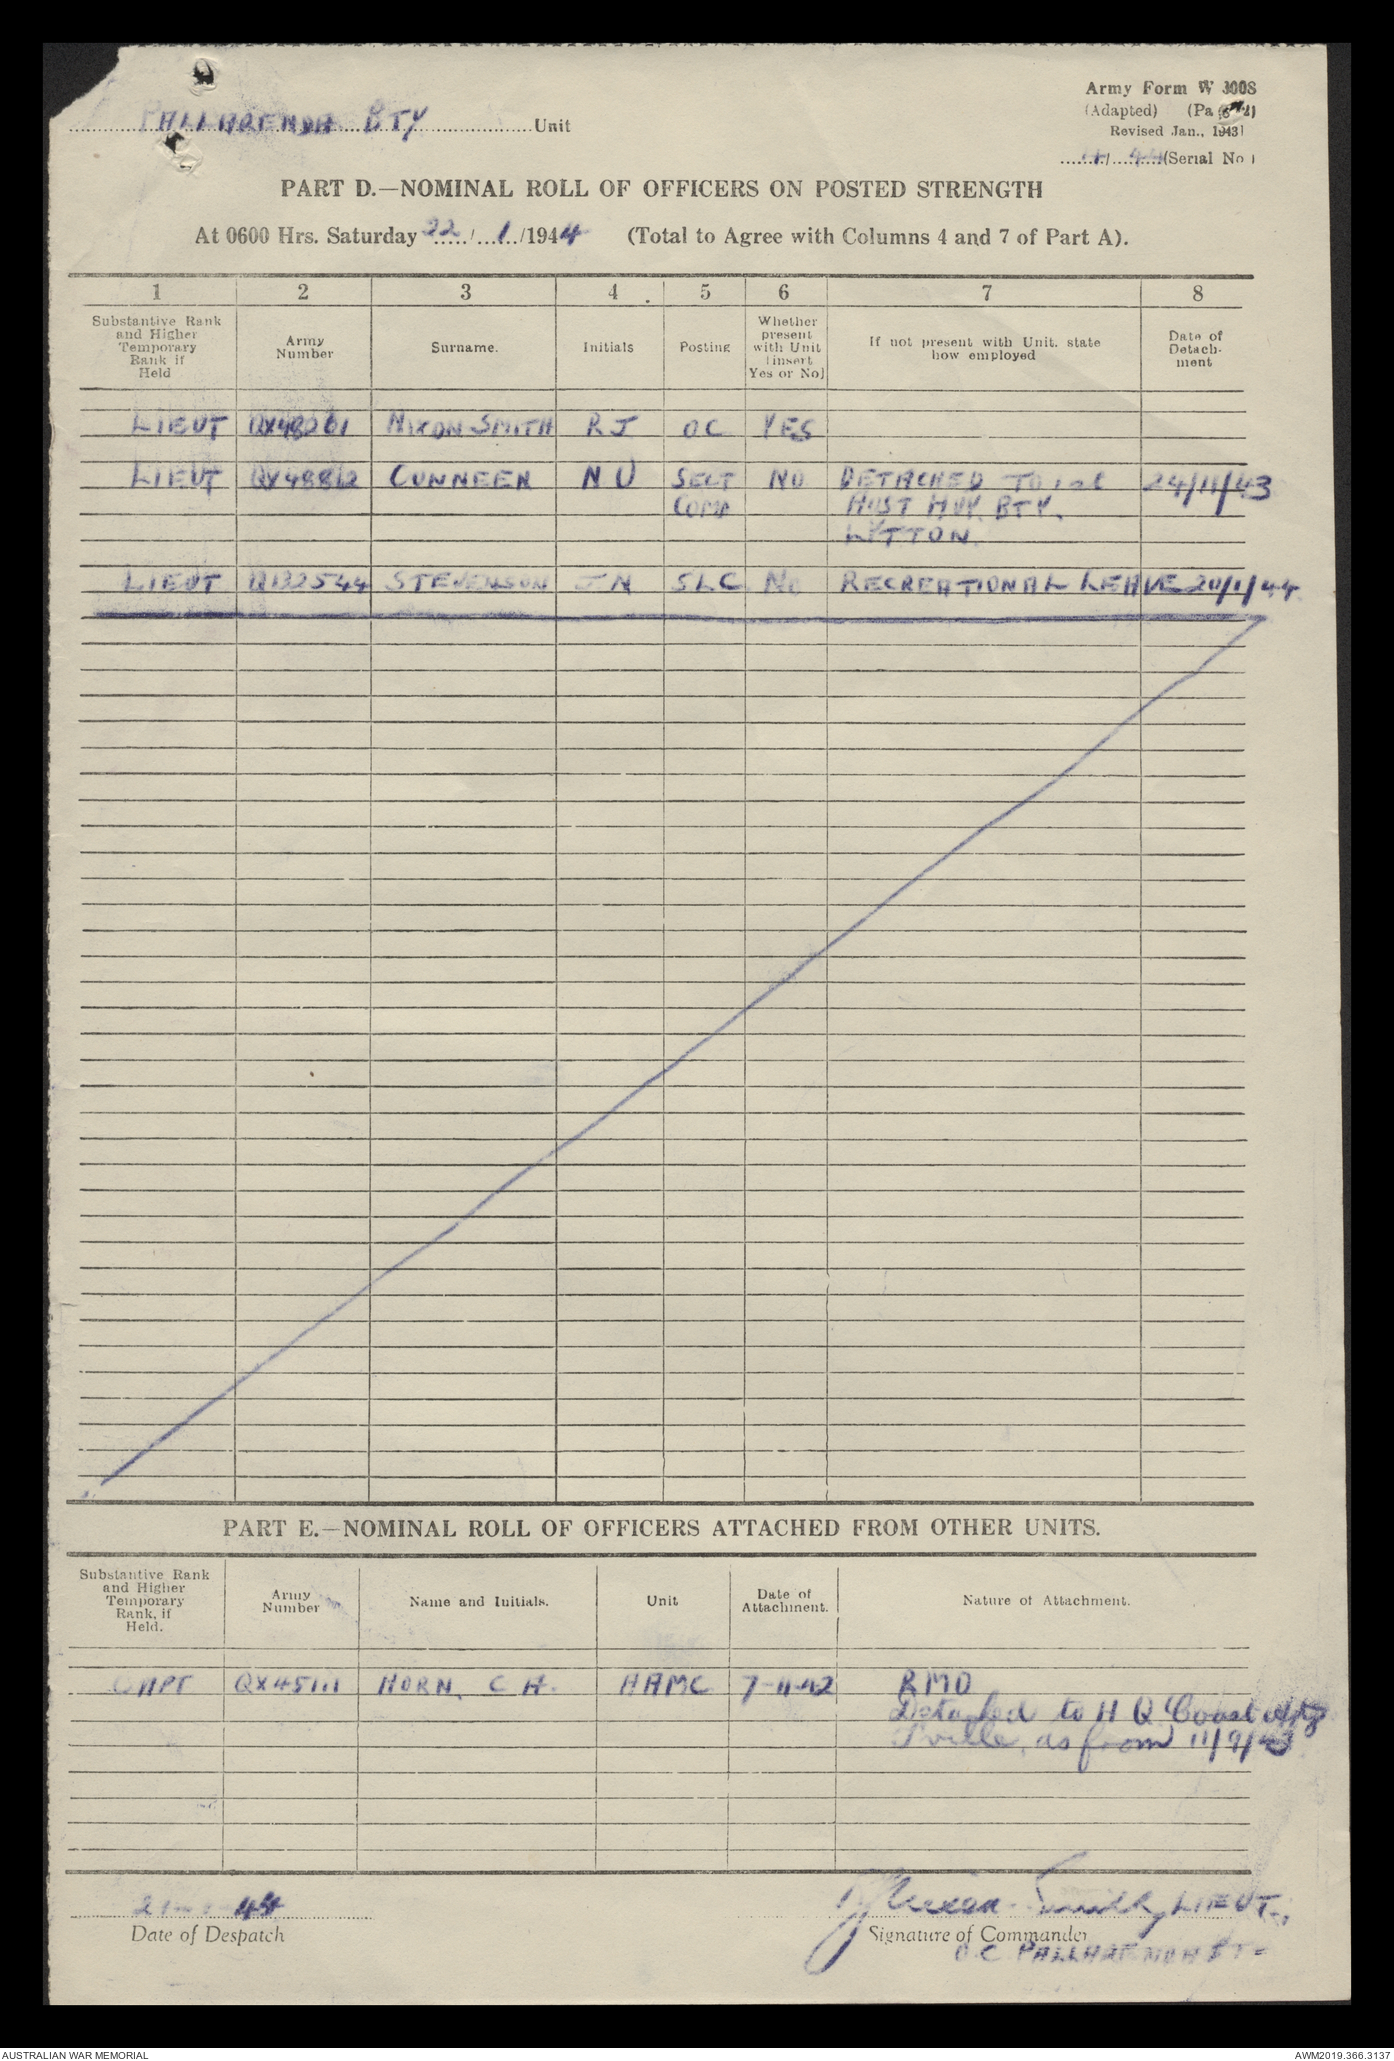 PALLARENDA BTY Unit
Army Form W 3008
(Adapted) (Pa
Revised Jan., 1943)
4/44 (Serial No.)
PART D.—NOMINAL ROLL OF OFFICERS ON POSTED STRENGTH
At 0600 Hrs. Saturday 22/1/1944 (Total to Agree with Columns 4 and 7 of Part A).
1 2 3 4 5 6 7 8
Substantive Rank and Higher Temporary Rank if Held
Army Number
Surname.
Initials
Posting
Whether present with Unit (insert Yes or No)
If not present with Unit, state how employed
Date of Detachment
LIEUT QX48201 NIXON SMITH R J OC YES
LIEUT QX48812 CUNNEEN N U SECT NO DETACHED TO 1st 24/11/43
COMD AUST HVY. BTY.
LYTTON.
LIEUT Q132544 STEVENSON J N SLC NO RECREATIONAL LEAVE 20/1/44
PART E.—NOMINAL ROLL OF OFFICERS ATTACHED FROM OTHER UNITS.
Substantive Rank and Higher Temporary Rank, if Held.
Army Number
Name and Initials.
Unit
Date of Attachment.
Nature of Attachment.
CAPT QX45111 HORN, C H. AAMC 7-11-42 RMO
Detached to H Q Coast Arty
T'ville, as from 11/9/43
21-1-44
R J Nixon-Smith, LIEUT,
Date of Despatch
Signature of Commander
O.C. PALLARENDA BTY
AUSTRALIAN WAR MEMORIAL
AWM2019.366.3137